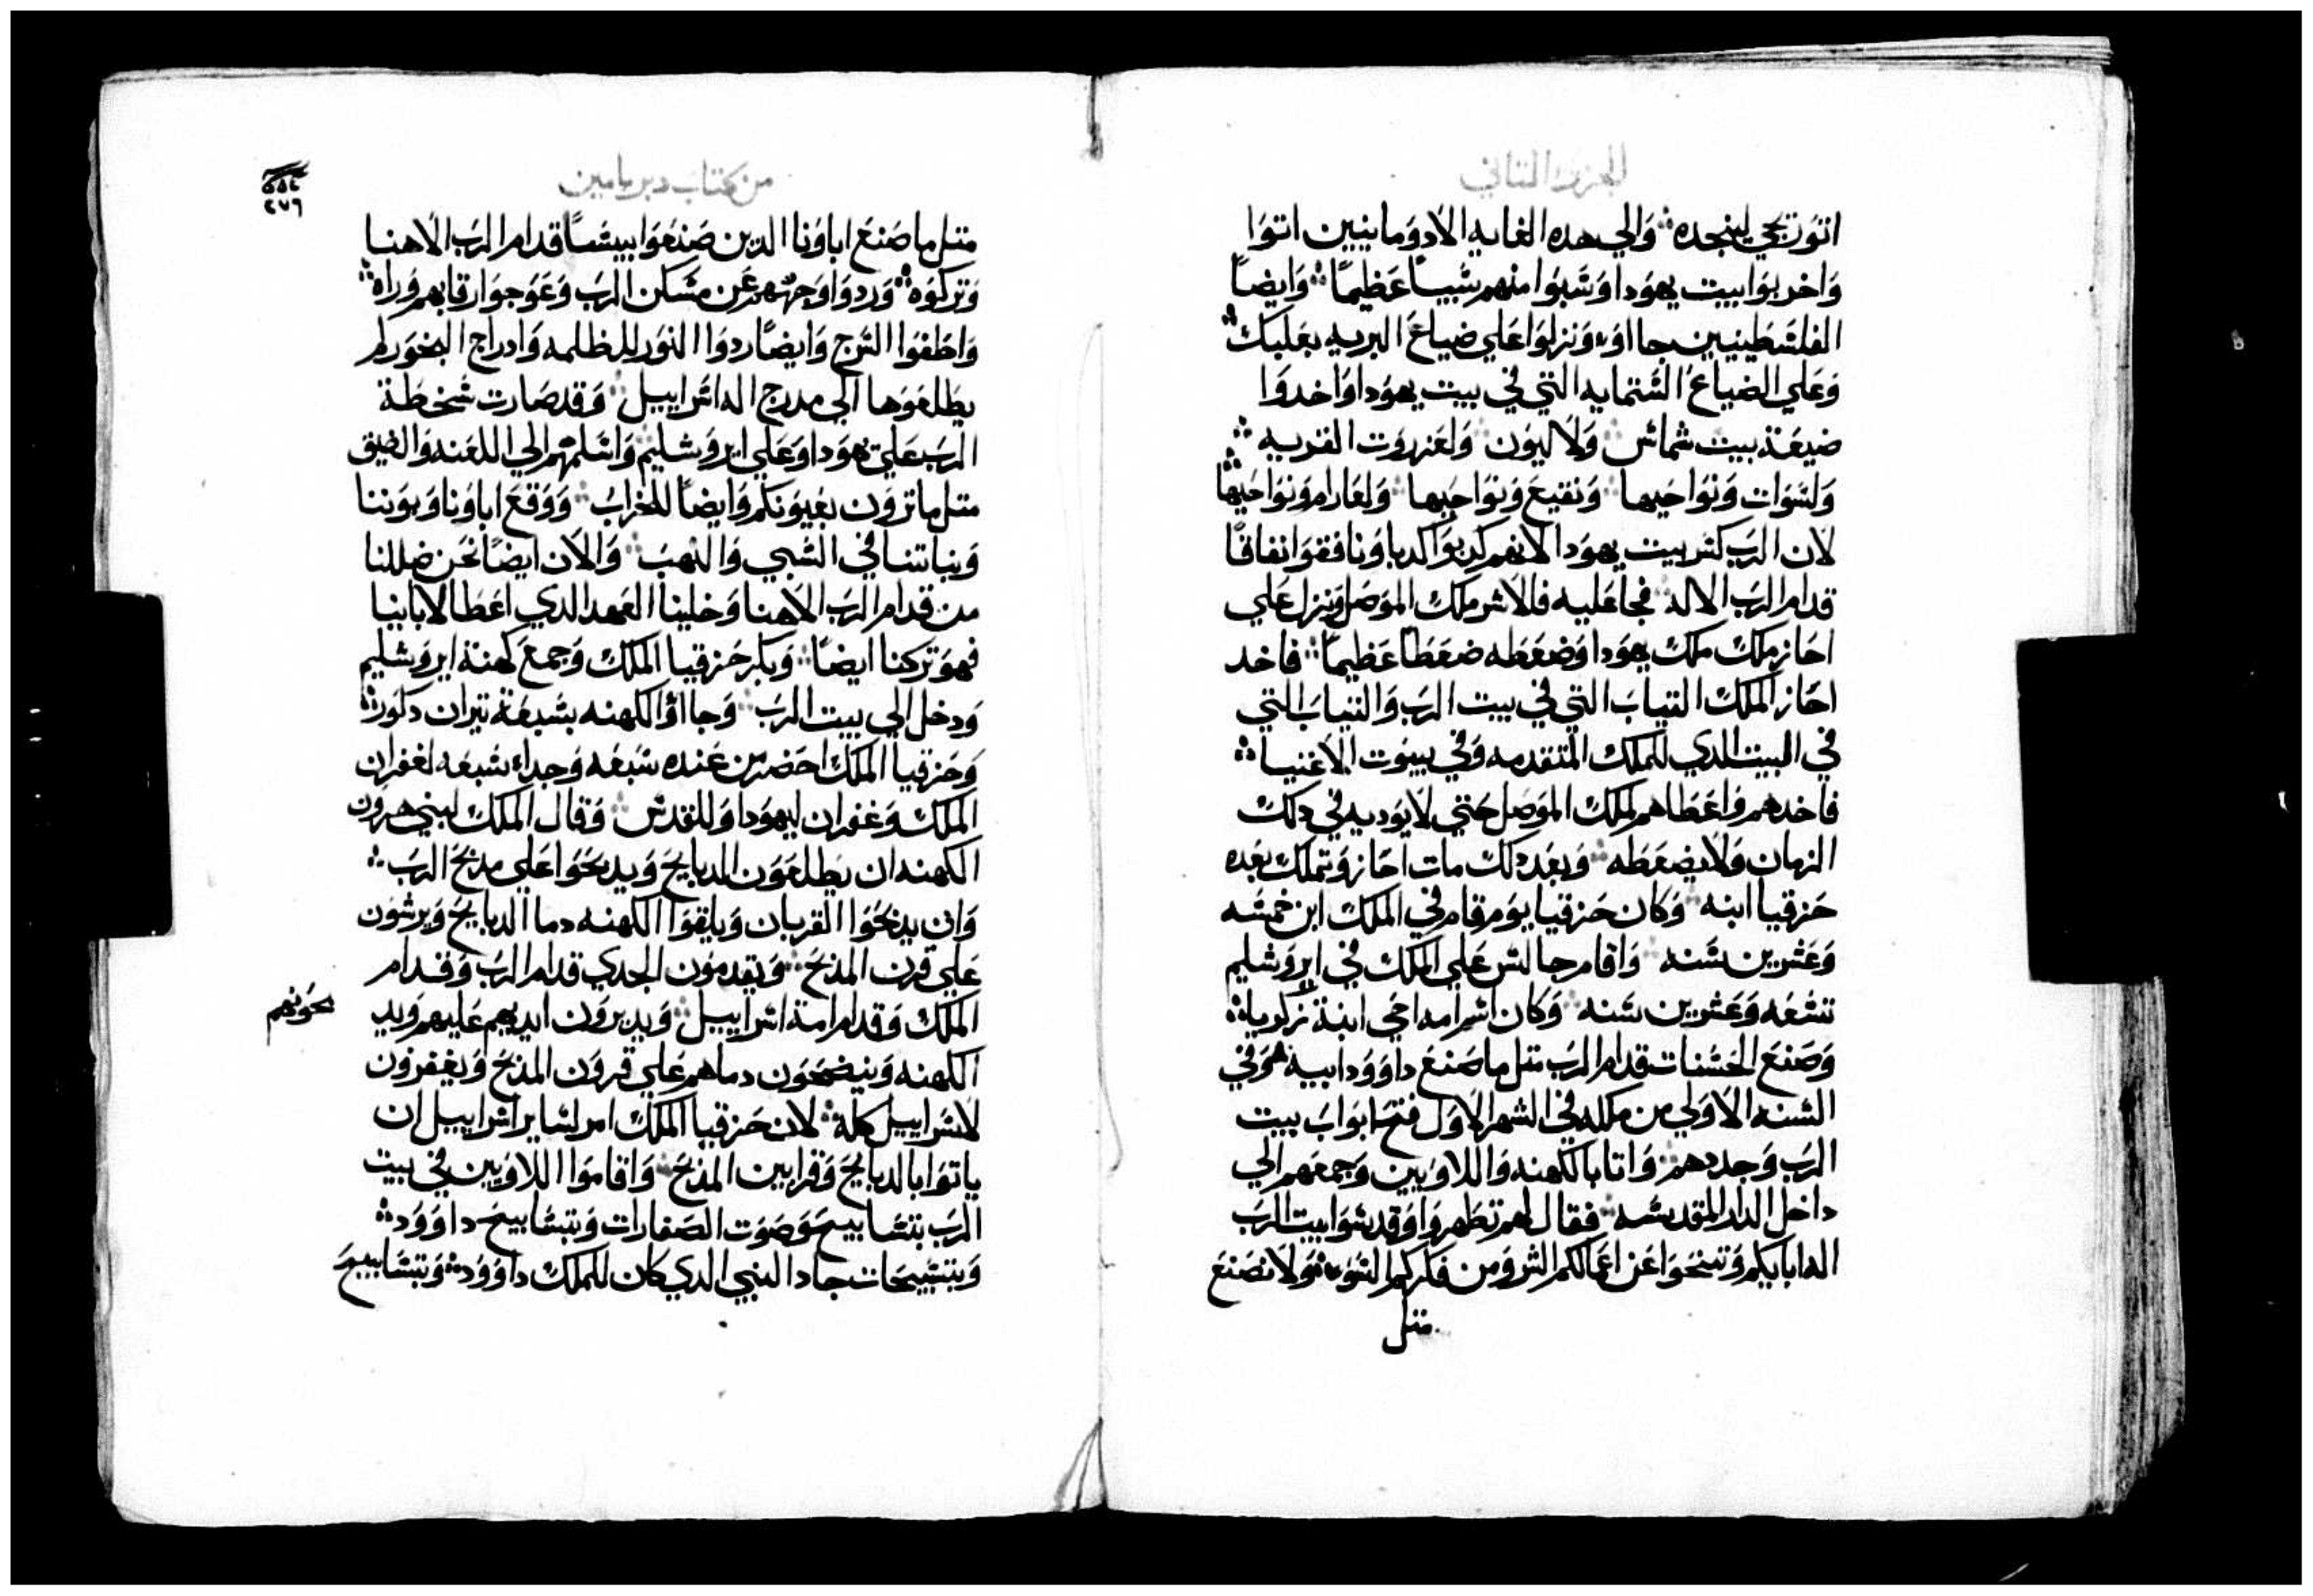 الجزء التاني
اتور تجي لينجده وَالي هده الغايه الادوَمانيين اتوَا
وَاخربوَا بيت يهوَدا وَسَبوَا منهم سَبياً عَظيماً وَايضاً
الفلسَطينيين جااو وَنزلوَا عَلي ضياعَ البريه بعَلبك
وَعَلي الضياعَ السَتمايه التي في بيت يهوَدا وَاخدوَا
ضيعَة بيت شماس وَلاليوَن وَلعَزروَت القريه
وَلسَوَات وَنوَاحيها وَنقيعَ وَنوَاحيها وَلعَارام وَنوَاحيها
لان الرَب كسَر بيت يهوَدا لانهم كدبوَا كدبا وَنافقوَا نفاقاً
قدام الرَب الالاه فجا عَليه فالاسَر ملك الموَصل وَنزل عَلي
احَاز ملك ملك يهوَدا وَضغَطه ضغَطاً عَظيماً فاخد
احَاز الملك التياب التي في بيت الرَب وَالتياب التي
في البيت الدي للملك المتقدمه وَفي بيوَت الاغنيا
فاخدهم وَاعَطاهم لملك الموَصل حَتي لا يوَديه في دلك
الزمان وَلا يضغَطه وَبعَد دلك مات احَاز وَتملك بعَده
حَزقيا ابنه وَكان حَزقيا يوَم قام في الملك ابن خمسَه
وَعَشرين سَنه وَاقام جالسَ عَلي الملك في ايروَشليم
تسَعَه وَعَشرين سَنه وَكان اسَم امه اخي ابنة زكريا
وَصَنعَ الحَسَنات قدام الرَب متل ما صَنعَ داوَوَد ابيه هوَ في
السَنه الاوَلي من ملكه في الشهر الاوَل فتحَ ابوَاب بيت
الرَب وَجددهم وَاتا بالكهنه وَاللاوَيين وَجمعَهم الي
داخل الدار المقدسَه فقال لهم تطهروَا وَقدسَوَا بيت الرَب
الاه ابايكم وَتنحَوَا عَن اعَمالكم الشر وَمن فكركم السَوَء وَلا نصَنعَ
متل
من كتاب دبريامين
٢٧٦
متل ما صَنعَ اباوَنا الدين صَنعَوَا بييسَاً قدام الرَب الاهنا
وَتركوَه وَردوَا وَجهَهم عَن مسَكن الرَب وَعَوَجوَا رقابهم وَراه
وَاطفوَا السَرج وَايضاً ردوَا النوَر للظلمه وَادراج البخوَر لم
يطلعَوَها الي مدبح الاه اسَراييل وَقد صَارت سَخطة
الرَب عَلي يهوَدا وَعَلي ايروَشليم وَاسَلمهم الي اللعَنه وَالضيق
متل ما تروَن بعَيوَنكم وَايضاً للخراب وَوَقعَ اباوَنا وَبوَننا
وَبناتنا في السَبي وَالنهب وَالان ايضاً نحَن ضللنا
من قدام الرَب الاهنا وَخلينا العَهد الدي اعَطا لابايينا
فهوَ تركنا ايضاً وَبكر حَزقيا الملك وَجمعَ كهنة ايروَشليم
وَدخل الي بيت الرَب وَجااوَا الكهنه بسَبعَة تيران دكوَره
وَحَزقيا الملك احَضر من عَنده سَبعَه وَجداء سَبعَه لغفران
الملك وَغفران ليهوَدا وَللقدسَ وَقال الملك لبني هروَن
الكهنه ان يطلعَوَن الدبايحَ وَيدبحَوَا عَلي مدبحَ الرَب
وَان يدبحَوَا القربان وَيلقوَا الكهنه دما الدبايحَ وَيرشوَن
عَلي قرن المدبحَ وَيقدموَن الجدي قدام الرَب وَقدام
الملك وَقدام امة اسَراييل وَيديروَن ايديهم عَليهم وَيد
بحَوَنهم
الكهنه وَينضحَوَن دماهم عَلي قروَن المدبحَ وَيغفروَن
لاسَراييل كله لان حَزقيا الملك امر لسَاير اسَراييل ان
ياتوَا بالدبايحَ وَقرابين المدبحَ وَاقاموَا اللاوَيين في بيت
الرَب بتسَابيحَ وَصَوَت الصَفارات وَبتسَابيحَ داوَوَد
وَبتسَبيحَات جاد النبي الدي كان للملك داوَوَد وَبتسَابيحَ